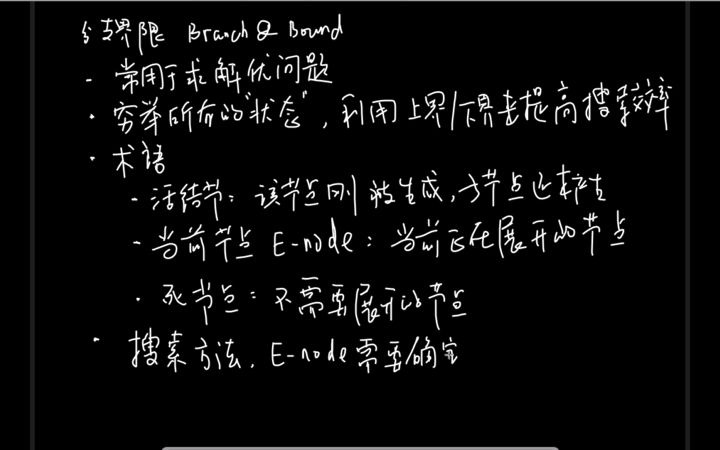 分支界限 Branch & Bound
- 常用于求解优问题
· 穷举所有的"状态", 利用上界/下界去提高搜索效率
· 术语
· 活结节: 该节点刚被生成, 子节点还未产生
- 当前节点 E-node: 当前正在展开的节点
· 死节点: 不需要展开的节点
· 搜索方法, E-node 需要确定